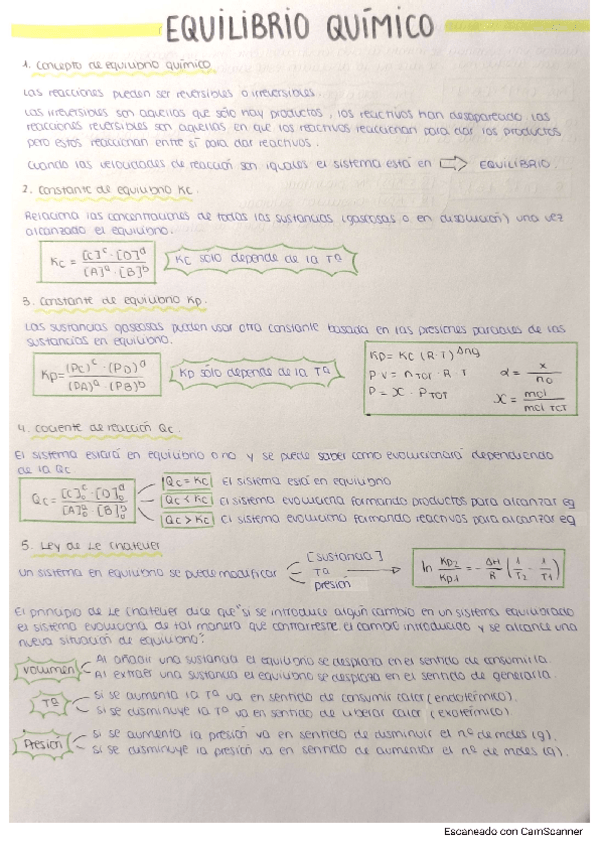 EQUILIBRIO QUÍMICO
1. Concepto de equilibrio químico.
Las reacciones pueden ser reversibles o irreversibles.
Las irreversibles son aquellas que sólo hay productos, los reactivos han desaparecido. Las
reacciones reversibles son aquellas en que los reactivos reaccionan para dar los productos
pero estos reaccionan entre sí para dar reactivos.
Cuando las velocidades de reacción son iguales el sistema está en ⇒ EQUILIBRIO.
2. Constante de equilibrio Kc.
Relaciona las concentraciones de todas las sustancias (gaseosas o en disolución) una vez
alcanzado el equilibrio.
Kc = [C]^c · [D]^d / [A]^a · [B]^b
Kc sólo depende de la Tª
3. Constante de equilibrio Kp.
Las sustancias gaseosas pueden usar otra constante basada en las presiones parciales de las
sustancias en equilibrio.
Kp = (Pc)^c · (PD)^d / (PA)^a · (PB)^b
Kp sólo depende de la Tª
Kp = Kc (R · T)^Δng
P V = n TOT · R · T
α = x / n0
P = X · P TOT
X = mol / mol TOT
4. Cociente de reacción Qc.
El sistema estará en equilibrio o no y se puede saber como evolucionará dependiendo
de la Qc
Qc = [C]₀^c · [D]₀^d / [A]₀^a · [B]₀^b
Qc = Kc El sistema está en equilibrio
Qc < Kc El sistema evoluciona formando productos para alcanzar eq
Qc > Kc El sistema evoluciona formando reactivos para alcanzar eq
5. Ley de Le Chatelier
Un sistema en equilibrio se puede modificar
[sustancia]
Tª
presión
ln Kp2 / Kp1 = - ΔH / R (1 / T2 - 1 / T1)
El principio de Le Chatelier dice que "si se introduce algún cambio en un sistema equilibrado
el sistema evoluciona de tal manera que contrarreste el cambio introducido y se alcance una
nueva situación de equilibrio."
Volumen
Al añadir una sustancia el equilibrio se desplaza en el sentido de consumirla.
Al extraer una sustancia el equilibrio se desplaza en el sentido de generarla.
Tª
Si se aumenta la Tª va en sentido de consumir calor (endotérmico).
Si se disminuye la Tª va en sentido de liberar calor (exotérmico).
Presión
Si se aumenta la presión va en sentido de disminuir el nº de moles (g).
Si se disminuye la presión va en sentido de aumentar el nº de moles (g).
Escaneado con CamScanner